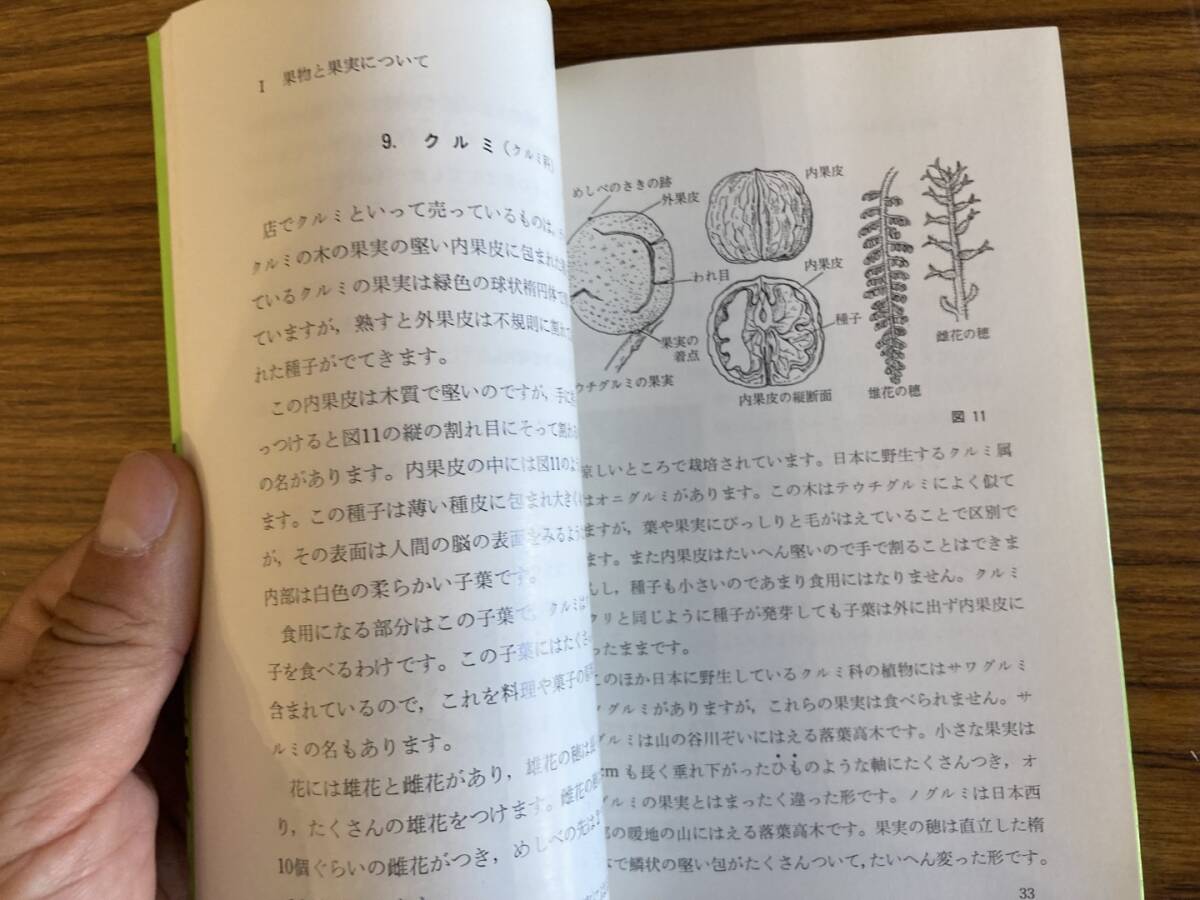 I 果物と果実について
9. クルミ（クルミ科）
店でクルミといって売っているものは，
クルミの木の果実の堅い内果皮に包まれた
ているクルミの果実は緑色の球状楕円体で
ていますが，熟すと外果皮は不規則に
れた種子がでてきます。
この内果皮は木質で堅いのですが，手に
っつけると図11の縦の割れ目にそって割れ
の名があります。内果皮の中には図11のよう
ます。この種子は薄い種皮に包まれ大きく
が，その表面は人間の脳の表面をみるよう
内部は白色の柔らかい子葉です。
食用になる部分はこの子葉で，クルミは
子を食べるわけです。この子葉にはたくさ
含まれているので，これを料理や菓子の
ルミの名もあります。
花には雄花と雌花があり，雄花の穂は
り，たくさんの雄花をつけます。雌花の
10個ぐらいの雌花がつき，めしべの先は2
めしべのさきの跡
外果皮
われ目
果実の
着点
ウチグルミの果実
内果皮
内果皮
種子
内果皮の縦断面
雄花の穂
雌花の穂
図 11
涼しいところで栽培されています。日本に野生するクルミ属
はオニグルミがあります。この木はテウチグルミによく似て
ますが，葉や果実にびっしりと毛がはえていることで区別で
ます。また内果皮はたいへん堅いので手で割ることはできま
んし，種子も小さいのであまり食用にはなりません。クルミ
クリと同じように種子が発芽しても子葉は外に出ず内果皮に
ったままです。
このほか日本に野生しているクルミ科の植物にはサワグルミ
ノグルミがありますが，これらの果実は食べられません。サ
グルミは山の谷川ぞいにはえる落葉高木です。小さな果実は
cmも長く垂れ下がったひものような軸にたくさんつき，オ
グルミの果実とはまったく違った形です。ノグルミは日本西
部の暖地の山にはえる落葉高木です。果実の穂は直立した楕
で鱗状の堅い包がたくさんついて，たいへん変った形です。
33